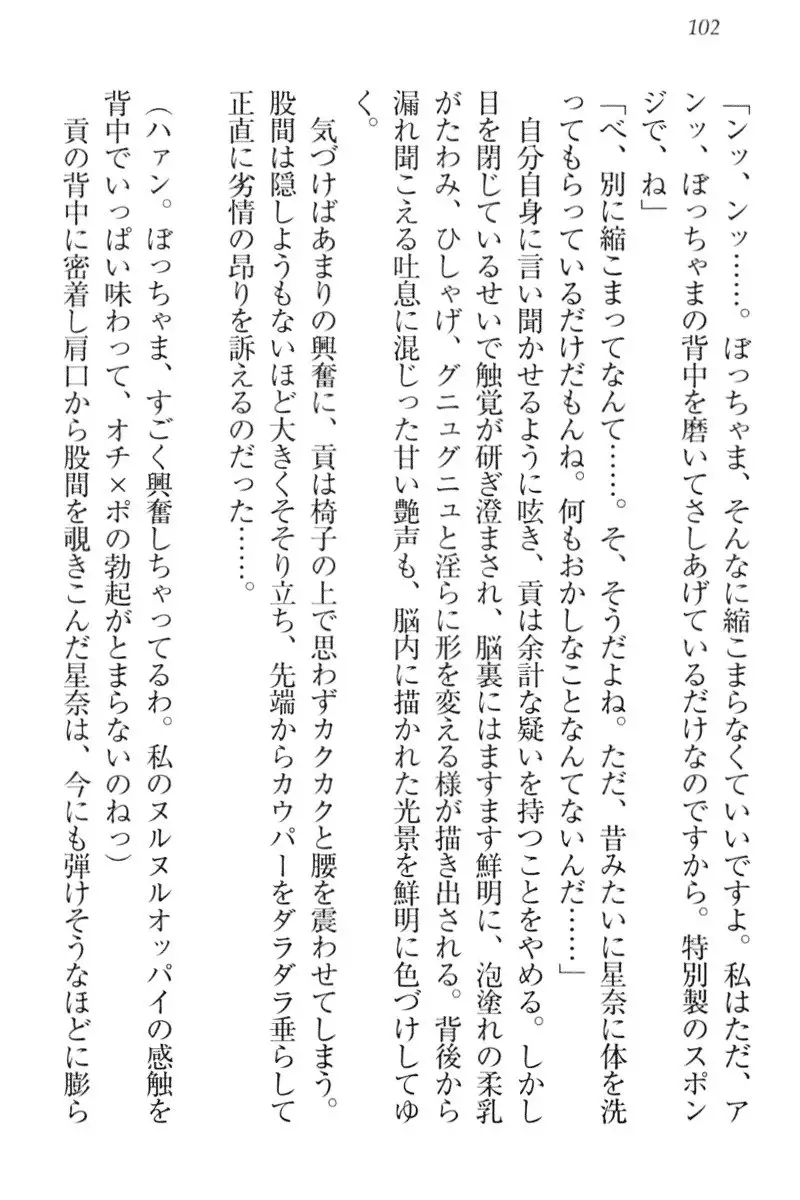 102
「ンッ、ンッ……。ぼっちゃま、そんなに縮こまらなくていいですよ。私はただ、ア
ンッ、ぼっちゃまの背中を磨いてさしあげているだけなのですから。特別製のスポン
ジで、ね」
「べ、別に縮こまってなんて……。そ、そうだよね。ただ、昔みたいに星奈に体を洗
ってもらっているだけだもんね。何もおかしなことなんてないんだ……」
自分自身に言い聞かせるように呟き、貢は余計な疑いを持つことをやめる。しかし
目を閉じているせいで触覚が研ぎ澄まされ、脳裏にはますます鮮明に、泡塗れの柔乳
がたわみ、ひしゃげ、グニュグニュと淫らに形を変える様が描き出される。背後から
漏れ聞こえる吐息に混じった甘い艶声も、脳内に描かれた光景を鮮明に色づけしてゆ
く。
気づけばあまりの興奮に、貢は椅子の上で思わずカクカクと腰を震わせてしまう。
股間は隠しようもないほど大きくそそり立ち、先端からカウパーをダラダラ垂らして
正直に劣情の昂りを訴えるのだった……。
（ハァン。ぼっちゃま、すごく興奮しちゃってるわ。私のヌルヌルオッパイの感触を
背中でいっぱい味わって、オチ×ポの勃起がとまらないのねっ）
貢の背中に密着し肩口から股間を覗きこんだ星奈は、今にも弾けそうなほどに膨ら